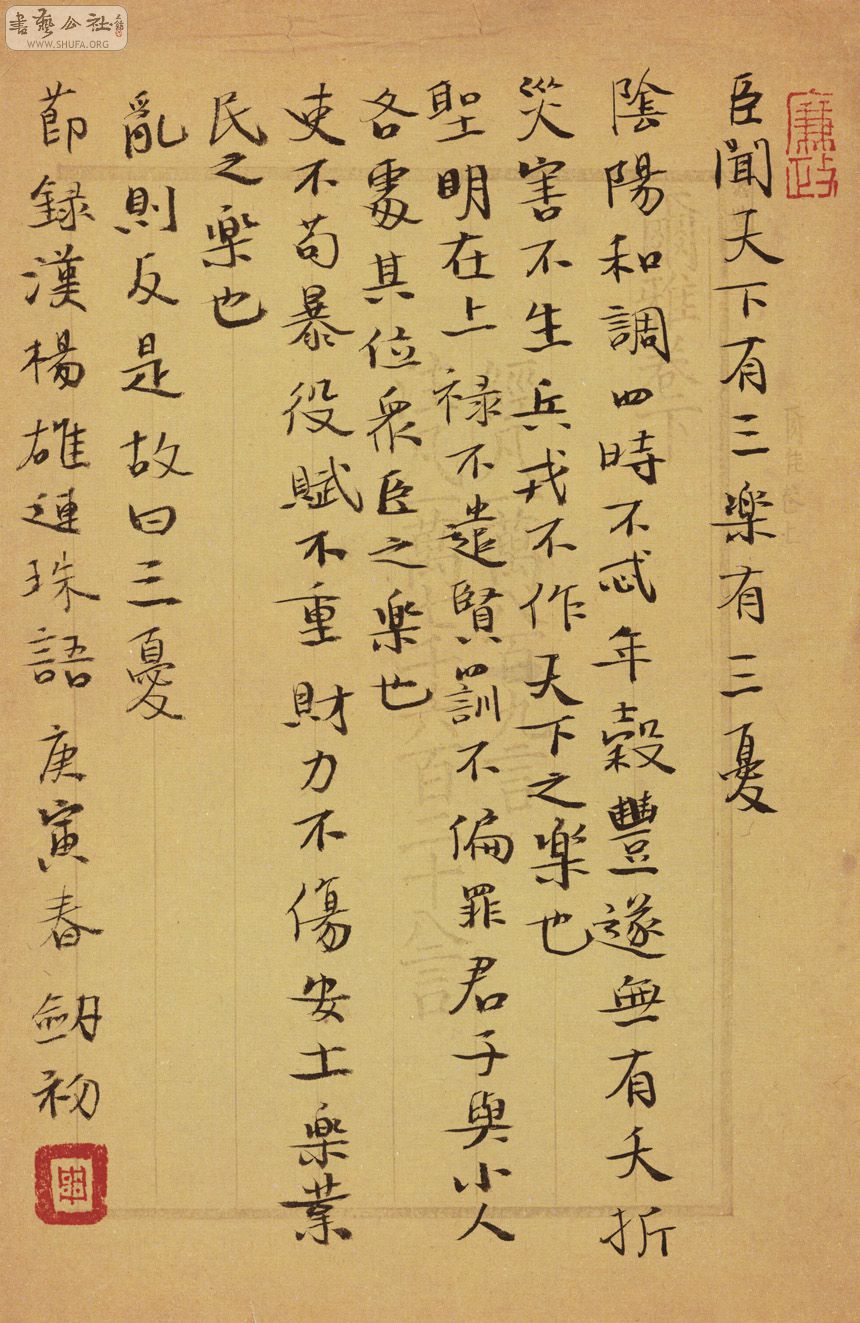 書藝公社
WWW.SHUFA.ORG
廉政
臣聞天下有三樂有三憂
陰陽和調四時不忒年穀豐遂無有夭折
災害不生兵戎不作天下之樂也
聖明在上禄不遺賢罰不偏罪君子與小人
各處其位衆臣之樂也
吏不苟暴役賦不重財力不傷安土樂業
民之樂也
亂則反是故曰三憂
節録漢楊雄連珠語庚寅春劒初
爾雅卷下